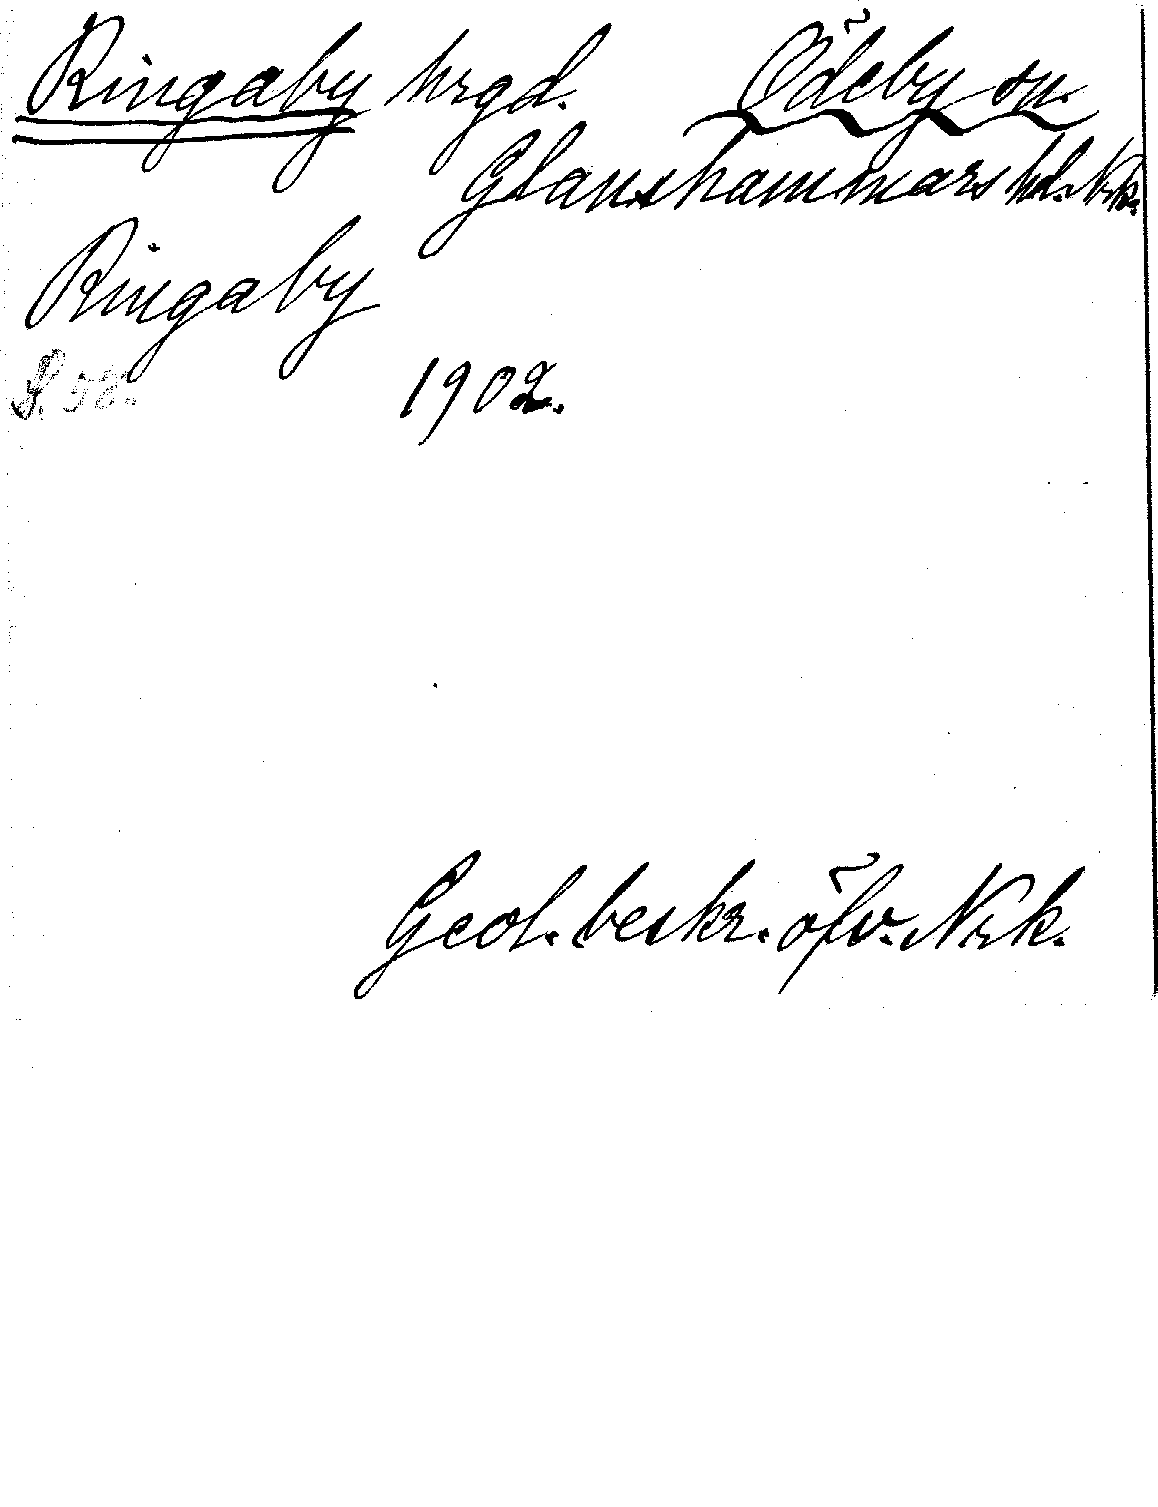 Ringaby hrgd. Ödeby sn.
Glanshammars hd. Nrk.
Ringaby
S. 58. 1902.
Geol. beskr. öfv. Nrk.